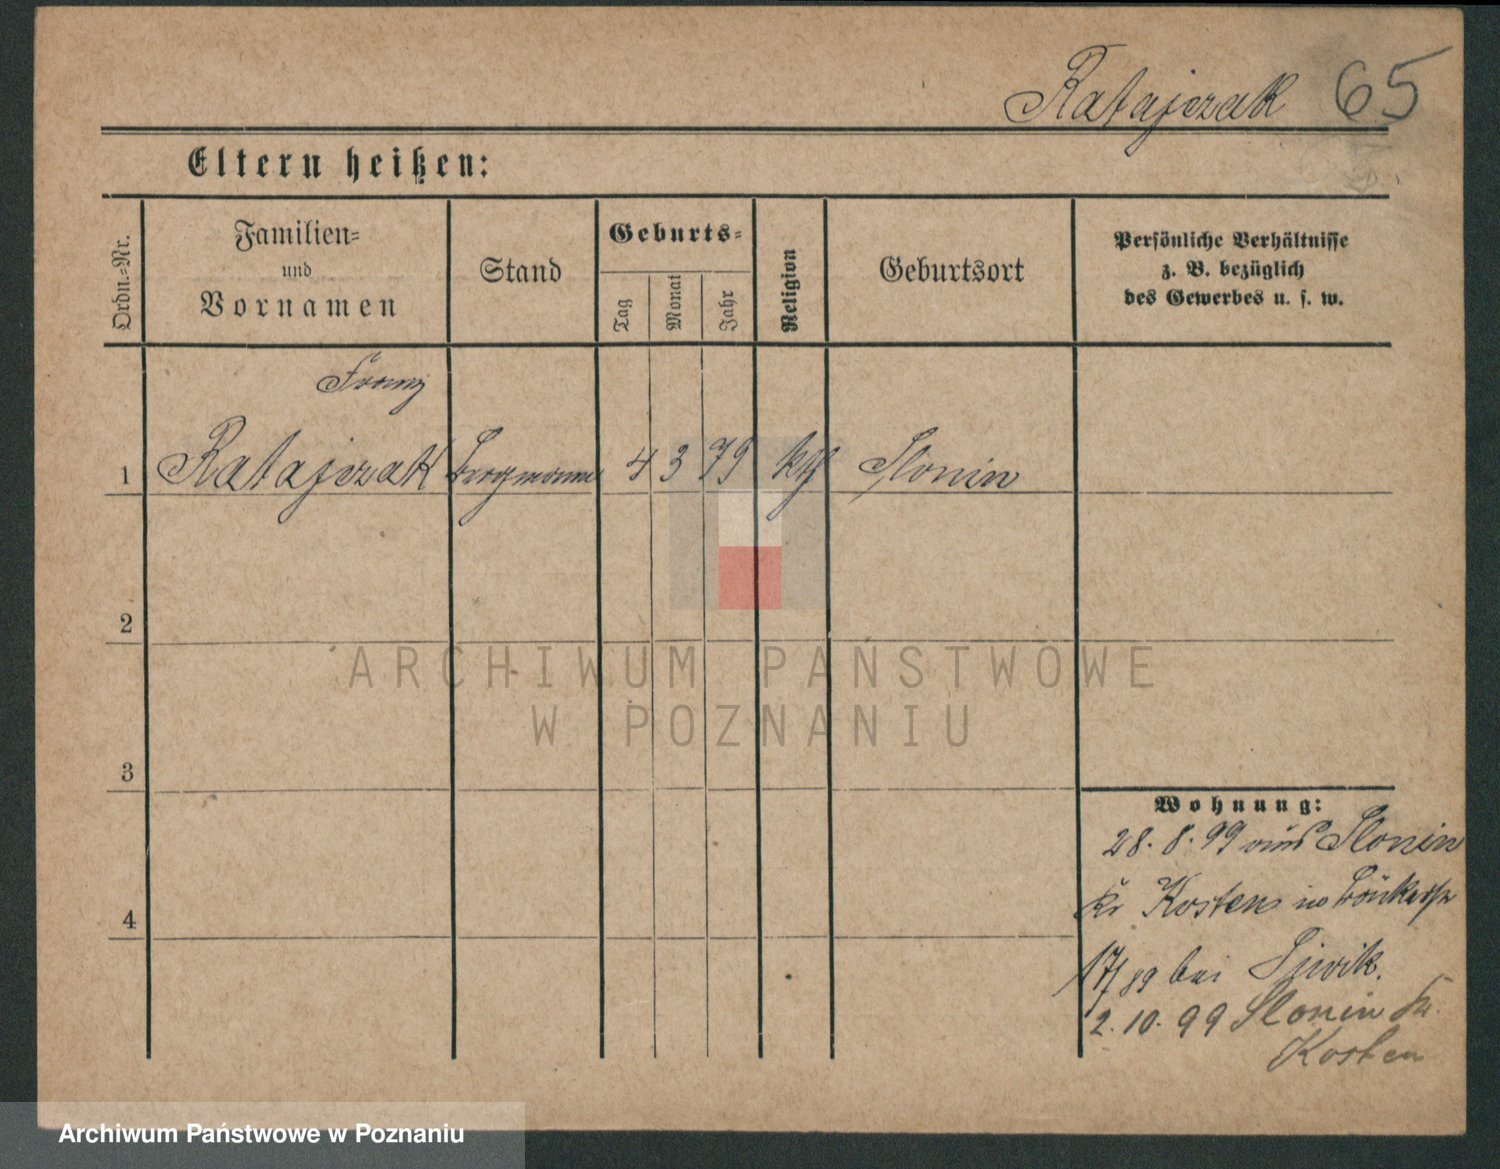 Ratajczak 65
Eltern heißen:
Ordn=Nr.
Familien=
und
Vornamen
Stand
Geburts=
Tag
Monat
Jahr
Religion
Geburtsort
Persönliche Verhältnisse
z. B. bezüglich
des Gewerbes u. s. w.
Franz
1 Ratajczak Bergmann 4 3 79 kth Slonin
2
3
4
Wohnung:
28. 8. 99 aus Slonin
Kr Kosten in
bei
2. 10. 99 Slonin Kr.
Kosten
ARCHIWUM PAŃSTWOWE
W POZNANIU
Archiwum Państwowe w Poznaniu